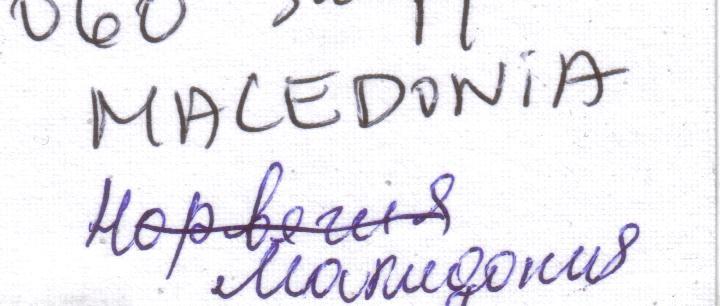 060
MACEDONiA
Норвегия
Макидония